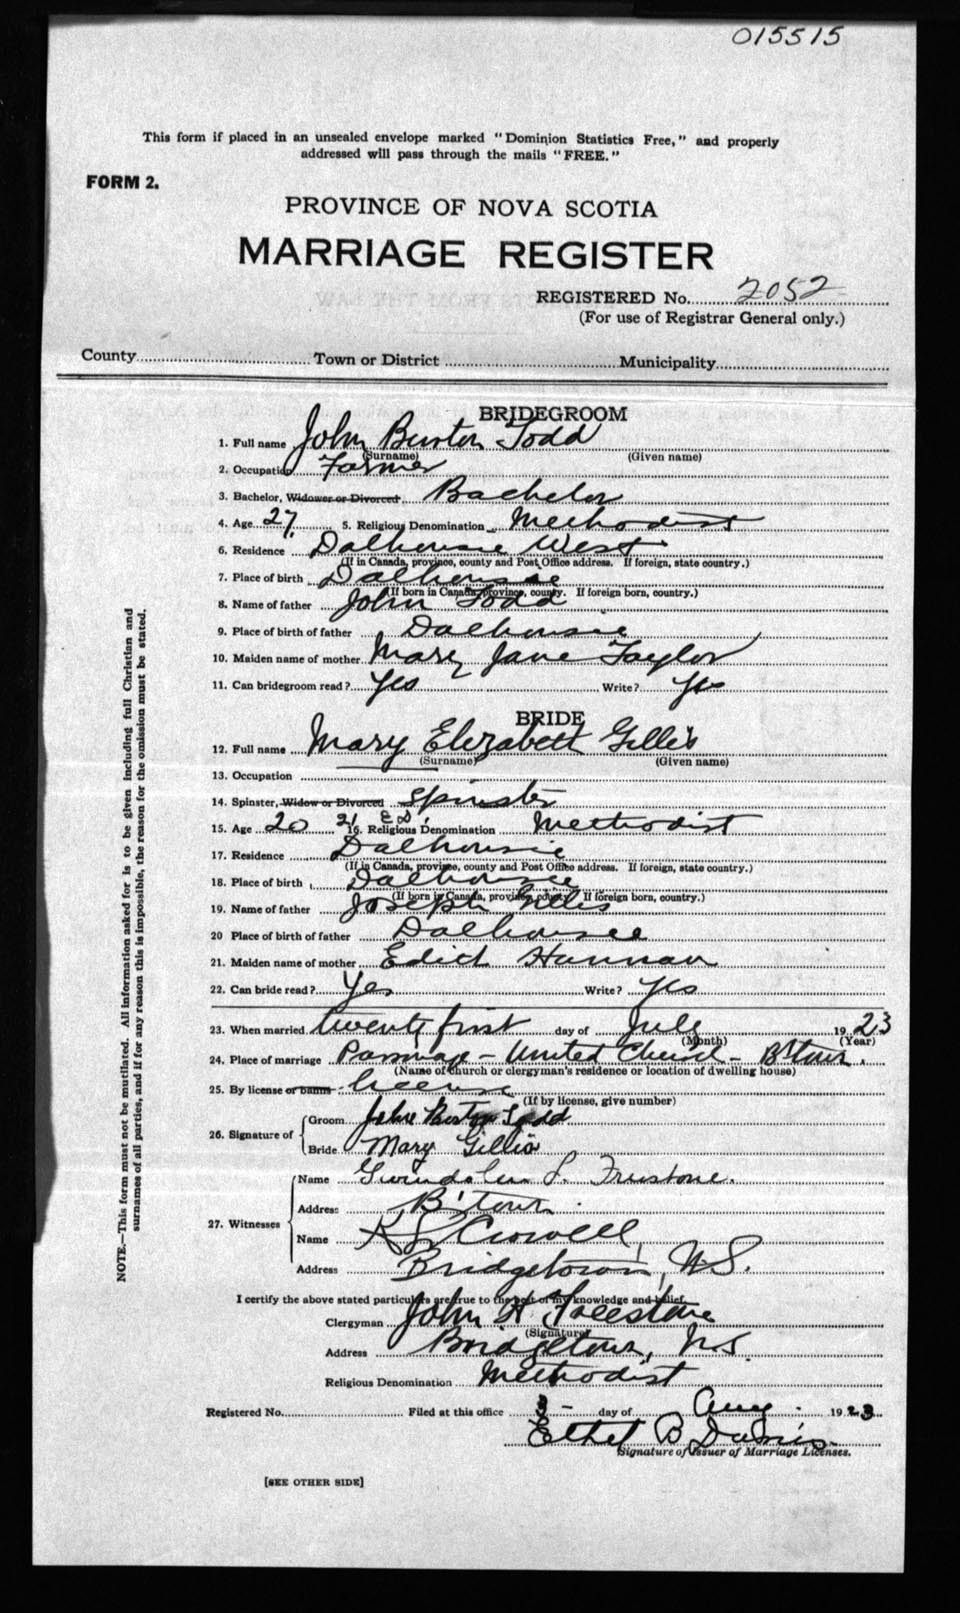 015515
This form if placed in an unsealed envelope marked "Dominion Statistics Free," and properly
addressed will pass through the mails "FREE."
FORM 2.
PROVINCE OF NOVA SCOTIA
MARRIAGE REGISTER
REGISTERED No. 2052
(For use of Registrar General only.)
County Town or District Municipality
BRIDEGROOM
1. Full name John Burton Todd
(Surname) (Given name)
2. Occupation Farmer
3. Bachelor, Widower or Divorced Bachelor
4. Age 27. 5. Religious Denomination Methodist
6. Residence Dalhousie West
(If in Canada, province, county and Post Office address. If foreign, state country.)
7. Place of birth Dalhousie
(If born in Canada, province, county. If foreign born, country.)
8. Name of father John Todd
9. Place of birth of father Dalhousie
10. Maiden name of mother Mary Jane Taylor
11. Can bridegroom read? Yes Write? Yes
BRIDE
12. Full name Mary Elizabeth Gillis
(Surname) (Given name)
13. Occupation
14. Spinster, Widow or Divorced Spinster
15. Age 20 21 E D. 16. Religious Denomination Methodist
17. Residence Dalhousie
(If in Canada, province, county and Post Office address. If foreign, state country.)
18. Place of birth Dalhousie
(If born in Canada, province, county. If foreign born, country.)
19. Name of father Joseph Gillis
20 Place of birth of father Dalhousie
21. Maiden name of mother Edith Hannan
22. Can bride read? Yes Write? Yes
23. When married twenty first day of July 1923
(Month) (Year)
24. Place of marriage Parsonage - United Church - B'town.
(Name of church or clergyman's residence or location of dwelling house)
25. By license or banns license
(If by license, give number)
26. Signature of Groom John Burton Todd
Bride Mary Gillis
27. Witnesses Name L.
Address B'town.
Name K S Crowell
Address Bridgetown, N.S.
I certify the above stated particulars are true to the best of my knowledge and belief.
Clergyman John H
(Signature)
Address Bridgetown, N.S.
Religious Denomination Methodist
Registered No. Filed at this office 3 - day of Aug. 1923
Ethel B
Signature of Issuer of Marriage Licenses.
[SEE OTHER SIDE]
NOTE.—This form must not be mutilated. All information asked for is to be given including full Christian and
surnames of all parties, and if for any reason this is impossible, the reason for the omission must be stated.